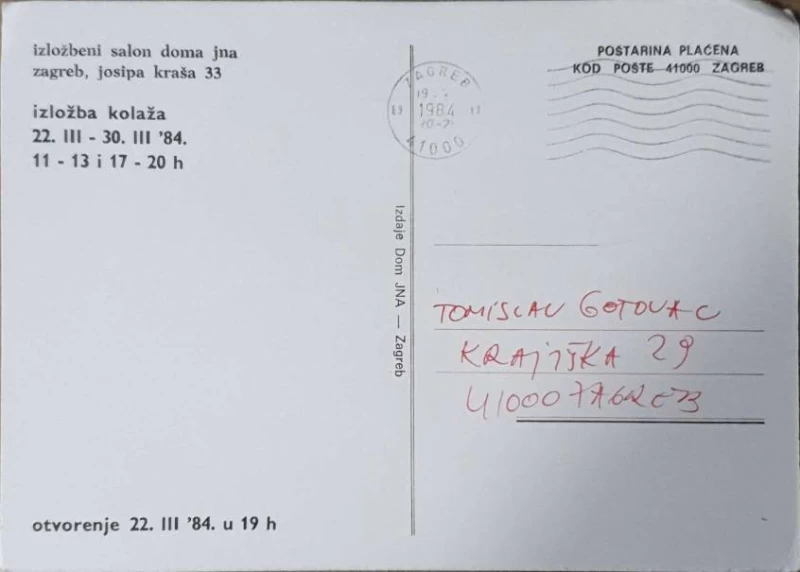 izložbeni salon doma jna
zagreb, josipa kraša 33
izložba kolaža
22. III - 30. III '84.
11 - 13 i 17 - 20 h
otvorenje 22. III '84. u 19 h
Izdaje Dom JNA — Zagreb
ZAGREB
19
1984
41000
POŠTARINA PLAĆENA
KOD POŠTE 41000 ZAGREB
TOMISLAV GOTOVAC
KRAJIŠKA 29
41000 ZAGREB